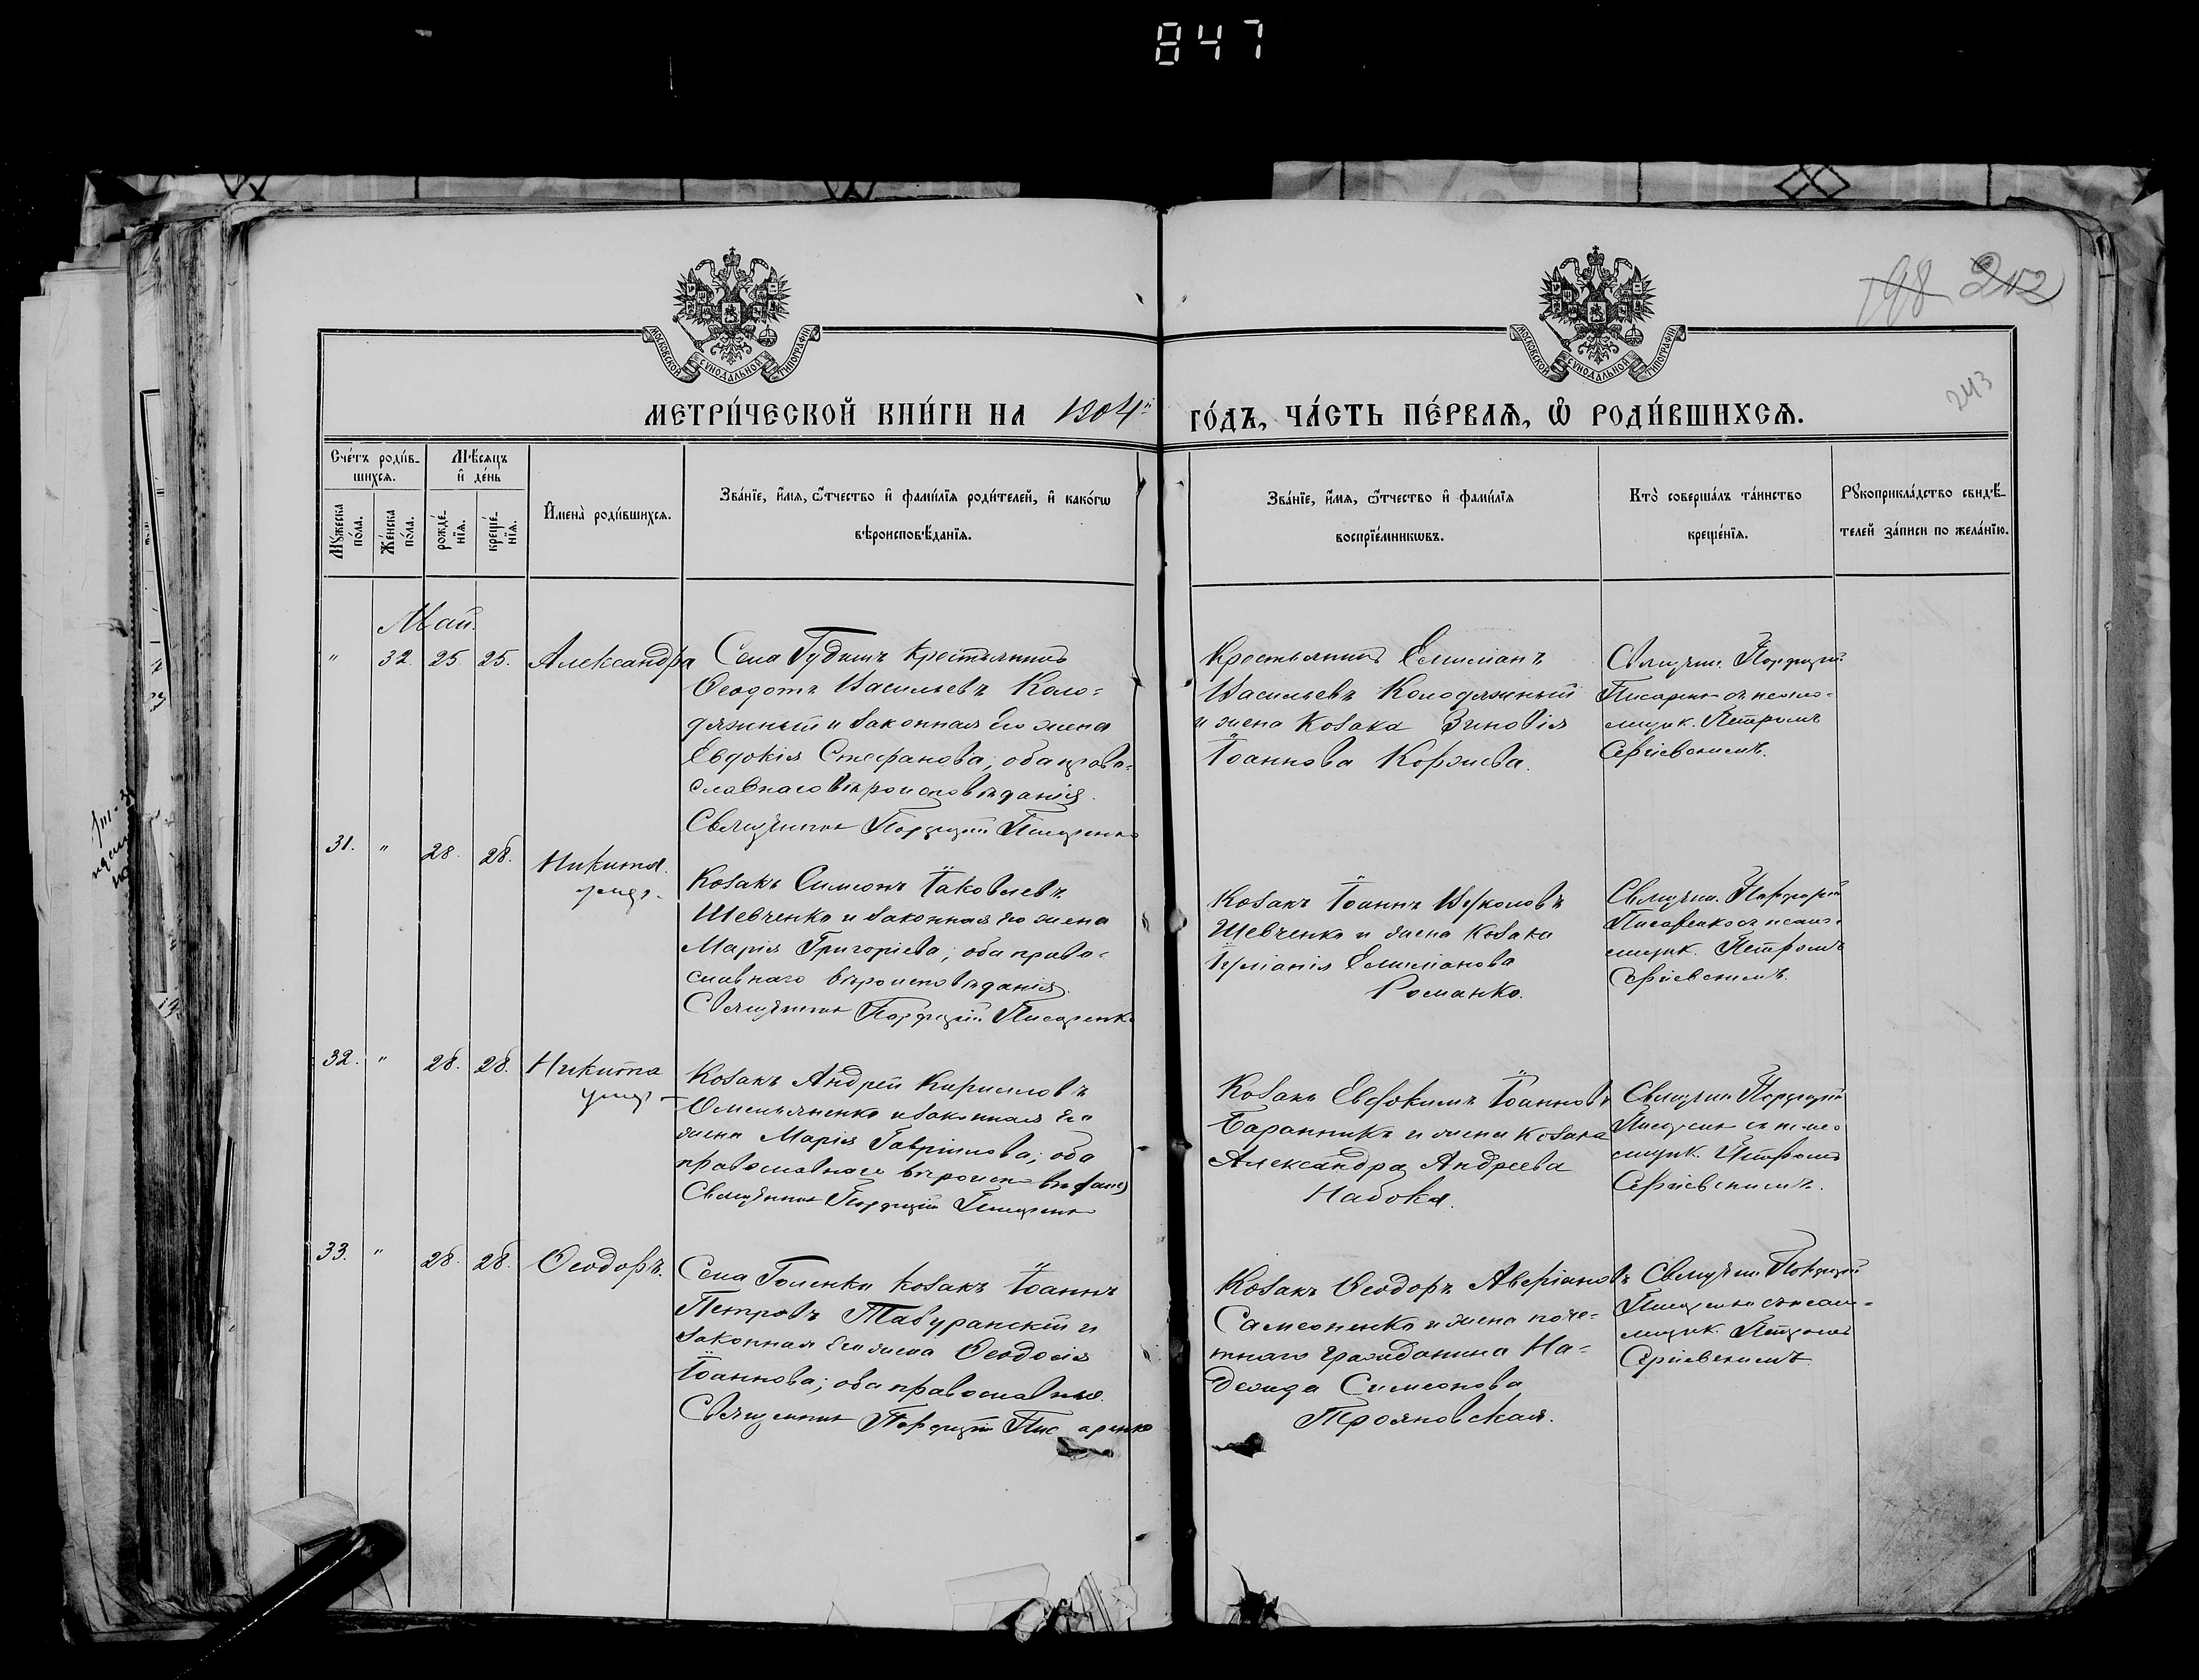 847
198 212
243
МОСКОВСКОЙ СѴНОДАЛЬНОЙ ТИПОГРАФІИ
МОСКОВСКОЙ СѴНОДАЛЬНОЙ ТИПОГРАФІИ
МЕТРИ́ЧЕСКОЙ КНИ́ГИ НА 1904й ГО́ДЪ, ЧА́СТЬ ПЕ́РВАѦ, Ѡ РОДИ́ВШИХСѦ.
Сче́тъ роди́в-
шихсѧ.
Мꙋ́жеска по́ла.
Же́нска по́ла.
Мѣ́сяцъ и де́нь
рожде́-
нїѧ.
креще́-
нїѧ.
Имена̀ роди́вшихсѧ.
Зва́нїе, и́мѧ, ѻ́тчество и фами́лїѧ роди́телей, и како́гѡ
вѣроисповѣ́данїѧ.
Зва́нїе, и́мѧ, ѻ́тчество и фами́лїѧ
воспрїе́мникѡвъ.
Кто̀ соверша́лъ та́инство
креще́нїѧ.
Рꙋкоприкла́дство свидѣ́-
телей за́писи по жела́нїю.
Май.
" 32. 25. 25. Александра
Села Гудимъ крестьянинъ
Ѳеодотъ Васильевъ Коло-
дяжный и законная его жена
Евдокія Стефанова; оба право-
славнаго вѣроисповѣданія.
Священникъ Порфирій Писаренко
Крестьянинъ Емиліанъ
Васильевъ Колодяжный
и жена козака Зиновія
Іоаннова Коржева.
Священ. Порфирій
Писаренко съ псало-
мщик. Петромъ
Сергіевскимъ.
31. " 28. 28. Никита.
умер.
Козакъ Симеонъ Іаковлевъ
Шевченко и законная его жена
Марія Григоріева; оба право-
славнаго вѣроисповѣданія.
Священникъ Порфирій Писаренко
Козакъ Іоаннъ
Шевченко и жена козака
Іуліанія Емиліанова
Романко.
Священ. Порфирій
Писаренко съ псало-
мщик. Петромъ
Сергіевскимъ.
32. " 28. 28. Никита
умер
Козакъ Андрей Кирилловъ
Омельяненко и законная его
жена Марія Гавріилова; оба
православнаго вѣроисповѣданія
Священникъ Порфирій Писаренко
Козакъ Евдокимъ Іоанновъ
Баранникъ и жена козака
Александра Андреева
Набока.
Священ. Порфирій
Писаренко съ псало
мщик. Петромъ
Сергіевскимъ.
33. " 28. 28. Ѳеодоръ.
Села Голенки козакъ Іоаннъ
Петровъ Табуранскій и
законная его жена Ѳеодосія
Іоаннова; оба православные.
Священникъ Порфирій Писаренко
Козакъ Ѳеодоръ Аверіановъ
Самсоненко и жена поче-
тнаго гражданина На-
дежда Симеонова
Трояновская.
Священ. Порфирій
Писаренко съ псало-
мщик. Петромъ
Сергіевскимъ